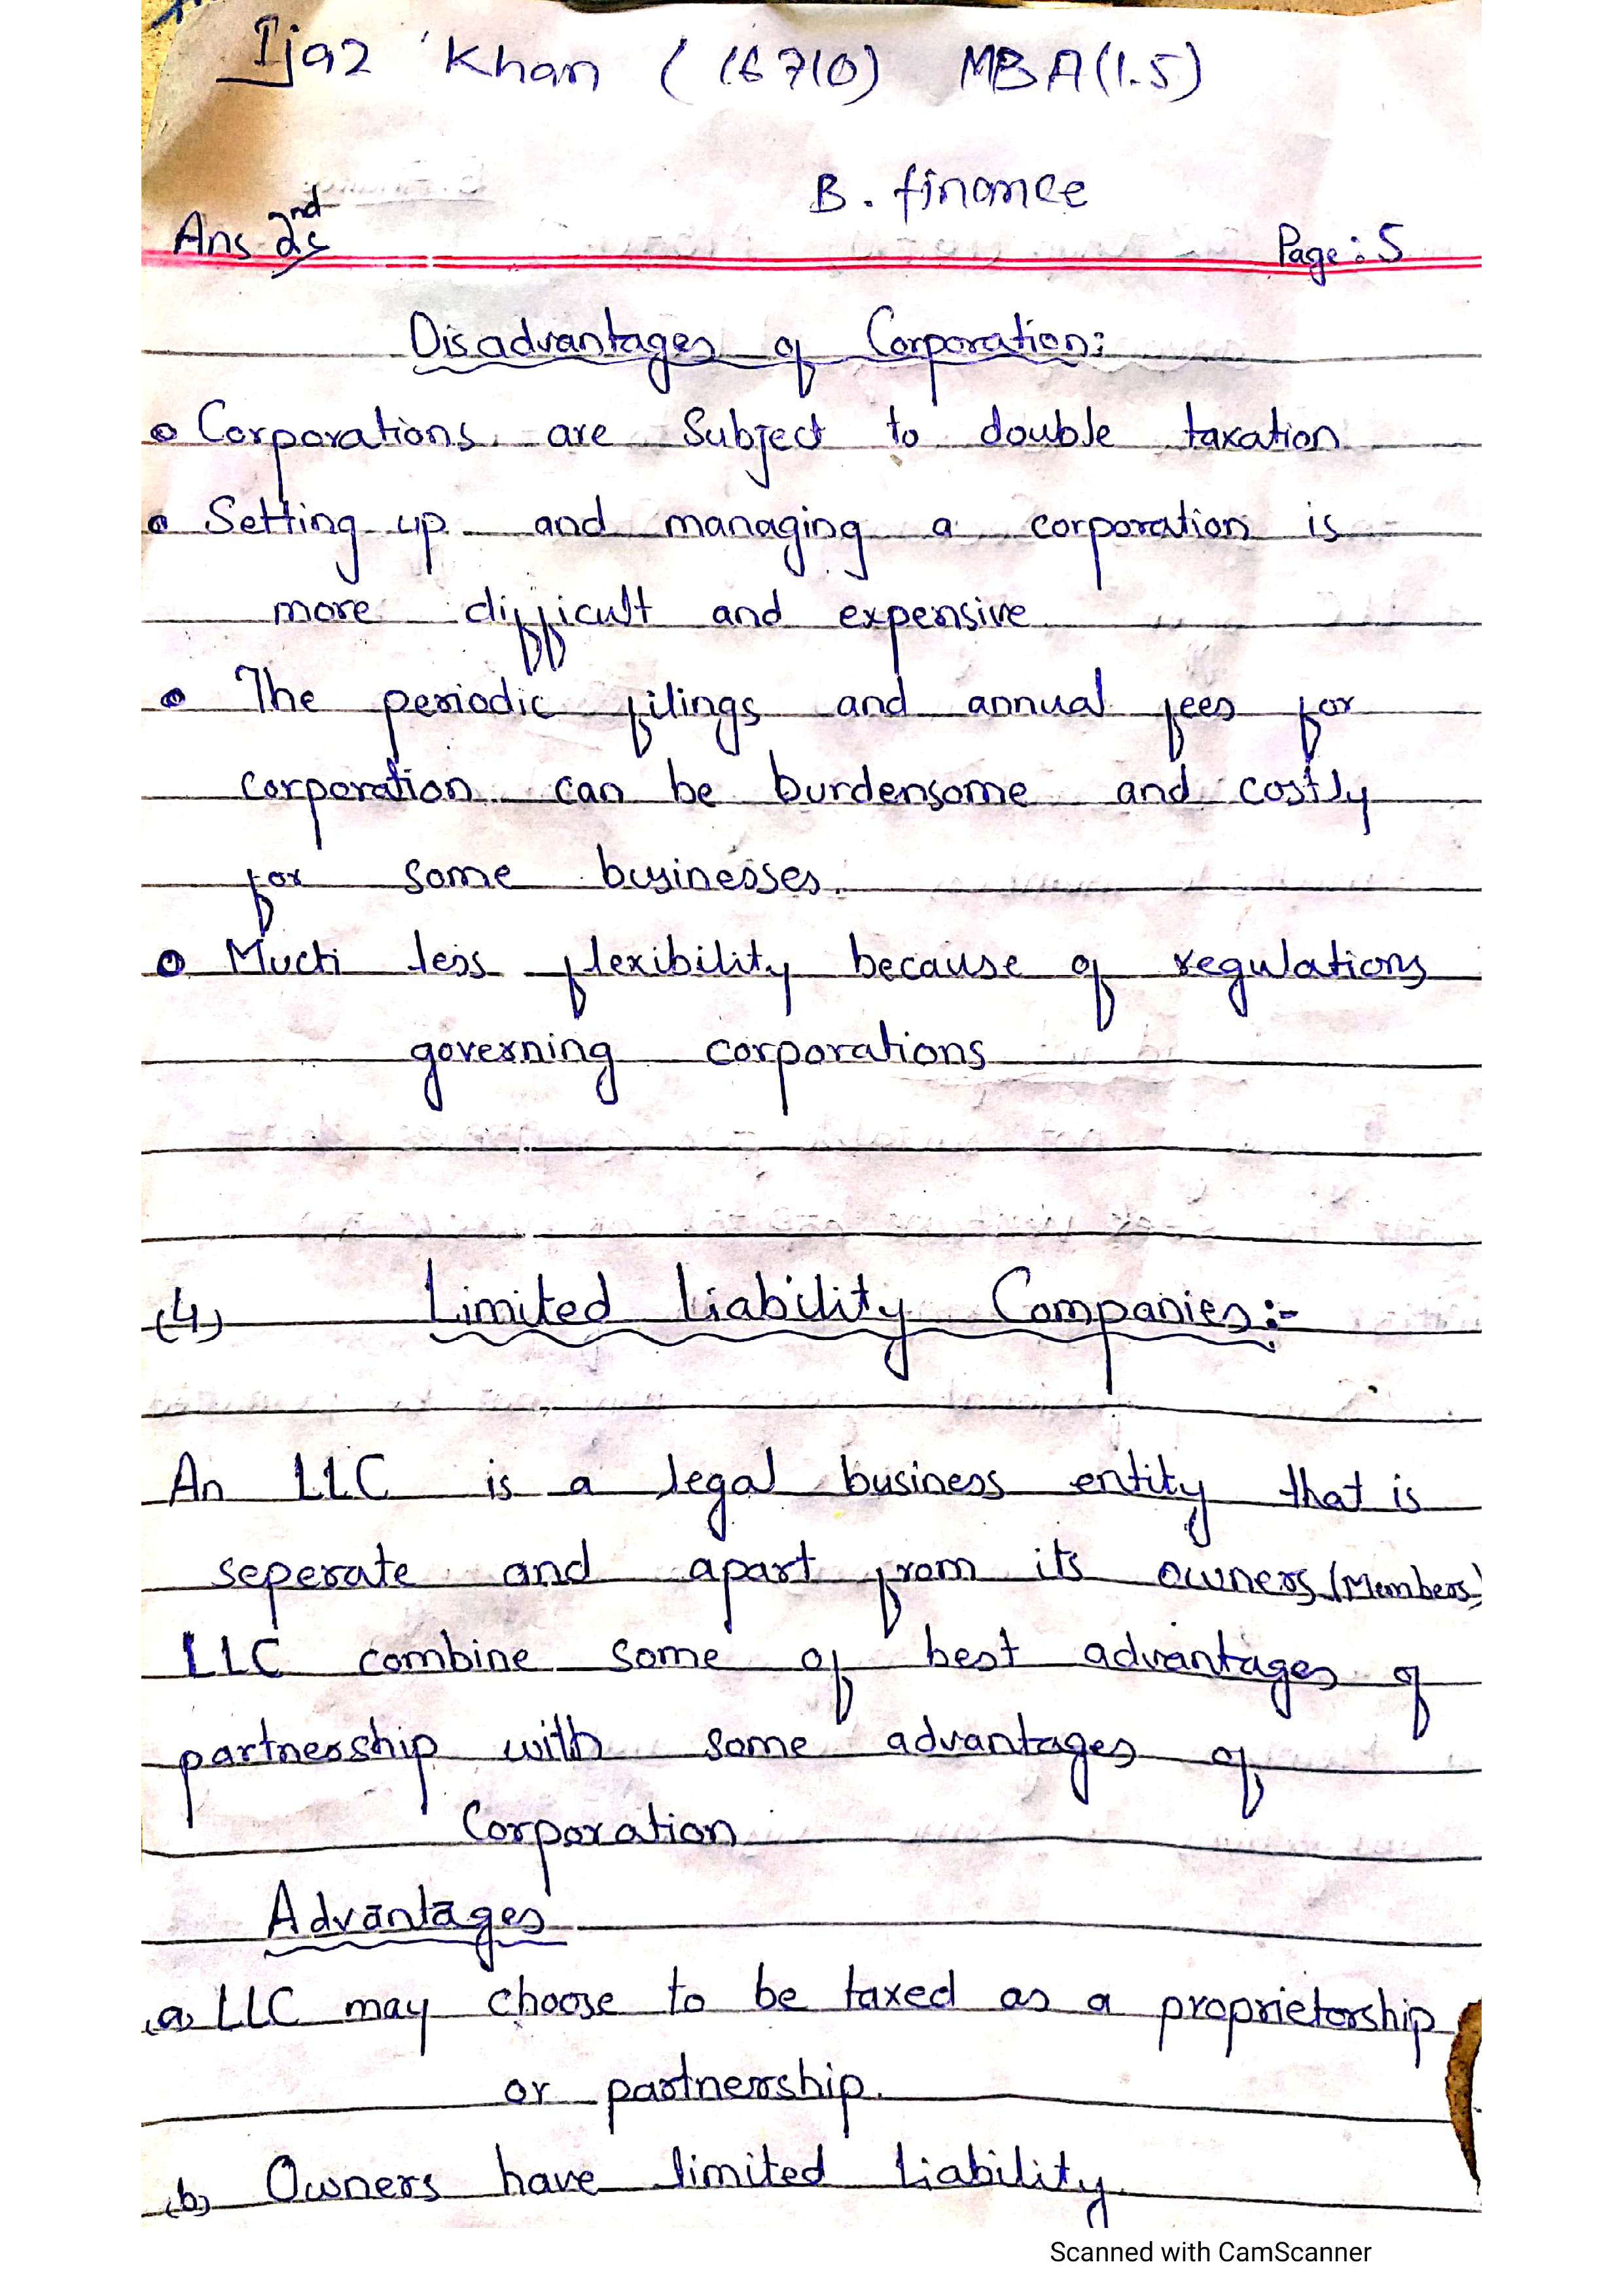 Ijaz Khan (16710) MBA(1.5)
B. finance
Ans 2nd
Page: 5
Disadvantages of Corporation:
Corporations are Subject to double taxation
Setting up and managing a corporation is
more difficult and expensive
The periodic filings and annual fees for
corporation can be burdensome and costly
for some businesses.
Much less flexibility because of regulations
governing corporations
(4) Limited Liability Companies:-
An LLC is a legal business entity that is
seperate and apart from its owners (Members)
LLC combine some of best advantages of
partnership with some advantages of
Corporation
Advantages
(a) LLC may choose to be taxed as a proprietorship
or partnership.
(b) Owners have limited Liability
Scanned with CamScanner